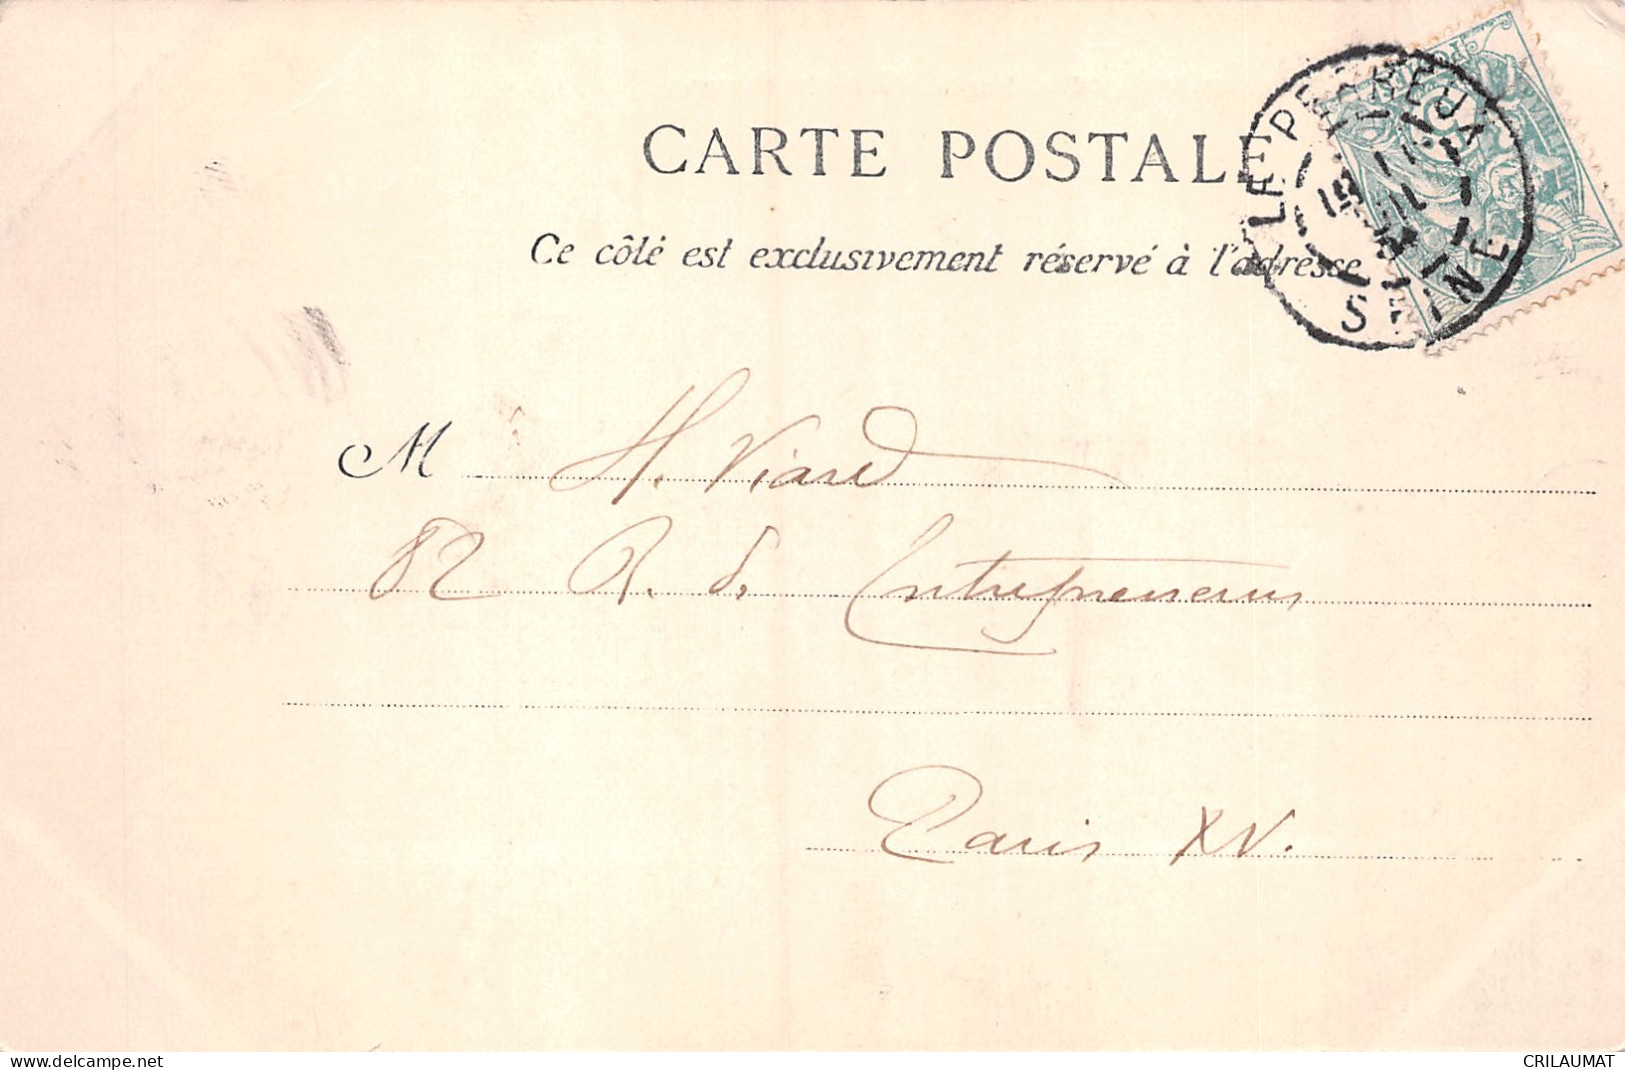 CARTE POSTALE
LE PERREUX
SEINE
Ce côté est exclusivement réservé à l'adresse
M H. Viard
82 R. d. Entrepreneurs
Paris XV.
www.delcampe.net
CRILAUMAT